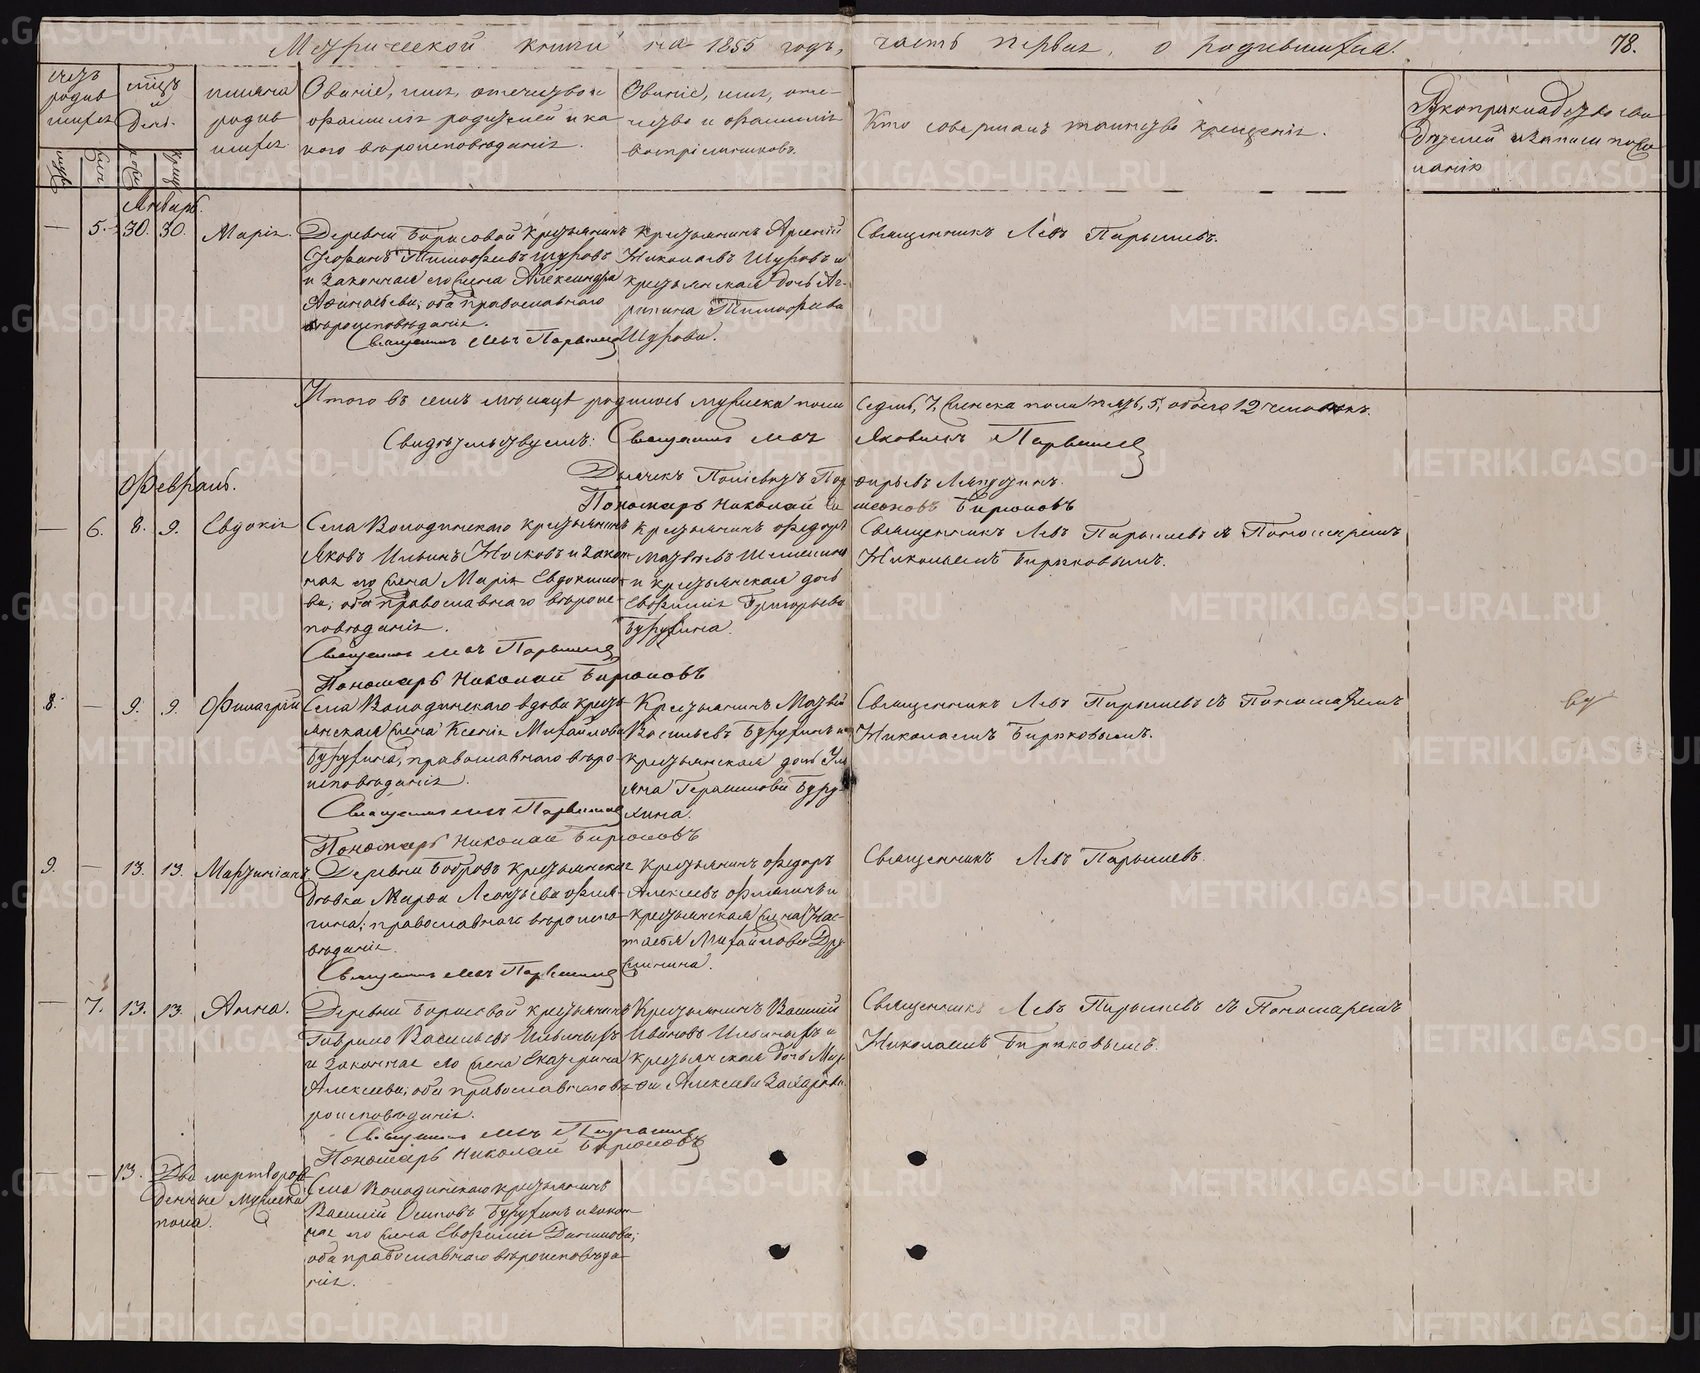 Метрической книги на 1855 годъ, часть первая, о родившихся.
78.
Счетъ родившихся
Мѣсяцъ и день.
Имена родившихся
Званіе, имя, отечество и фамилія родителей и какого вѣроисповѣданія.
Званіе, имя, отечество и фамилія воспріемниковъ.
Кто совершалъ таинство крещенія.
Рукоприкладство свидѣтелей записи по желанію
Январь.
— 5. 30. 30. Марія.
Деревни Борисовой крестьянинъ
Тимофѣевъ Щуровъ
и законная его жена Александра
оба православнаго
вѣроисповѣданія.
Священникъ Левъ Парышевъ
Крестьянинъ Арсеній
Николаевъ Щуровъ и
крестьянская дочь Аг-
рипина Тимофѣева
Щурова.
Священникъ Левъ Парышевъ.
Итого въ семъ мѣсяцѣ родилось мужеска пола седмь, 7, женска пола пять, 5, обоего 12 человѣкъ.
Свидѣтельствуемъ: Священникъ Левъ Яковлевъ Парышевъ
Дьячекъ Порфирьевъ
Пономарь Николай Бирюковъ
Февраль.
— 6. 8. 9. Евдокія
Села Володинскаго крестьянинъ
Яковъ Ильинъ Носковъ и закон-
ная его жена Марія Евдокимо-
ва, оба православнаго вѣроис-
повѣданія.
Священникъ Левъ Парышевъ
Пономарь Николай Бирюковъ
Крестьянинъ Федоръ
Матвѣевъ
и крестьянская дочь
Евфимія Григорьева
Бурухина.
Священникъ Левъ Парышевъ съ Пономаремъ
Николаемъ Бирюковымъ.
8. — 9. 9. Филагрій
Села Володинскаго вдова кресть-
янская жена Ксенія Михайлова
Бурухина, православнаго вѣро-
исповѣданія.
Священникъ Левъ Парышевъ
Пономарь Николай Бирюковъ
Крестьянинъ Матвѣй
Васильевъ Бурухинъ и
крестьянская дочь Уль-
яна Герасимова Буру-
хина.
Священникъ Левъ Парышевъ съ Пономаремъ
Николаемъ Бирюковымъ.
9. — 13. 13. Мартиніанъ.
Деревни Бобровъ крестьянская
дѣвка Марфа Леонтьева Фила-
тина, православнаго вѣроиспо-
вѣданія.
Священникъ Левъ Парышевъ
Крестьянинъ Федоръ
Алексѣевъ и
крестьянская жена Нас-
тасья Михайлова Дру-
жинина.
Священникъ Левъ Парышевъ.
— 7. 13. 13. Анна.
Деревни Борисовой крестьянинъ
Гаврило Васильевъ Ильиныхъ
и законная его жена Екатерина
Алексѣева, оба православнаго вѣ-
роисповѣданія.
Священникъ Левъ Парышевъ
Пономарь Николай Бирюковъ
Крестьянинъ Василій
Ивановъ Ильиныхъ и
крестьянская дочь Мар-
фа Алексѣева Захарова.
Священникъ Левъ Парышевъ съ Пономаремъ
Николаемъ Бирюковымъ.
— — 13. Два мертворож-
денные мужеска
пола.
Села Володинскаго крестьянинъ
Василій Осиповъ Бурухинъ и закон-
ная его жена Евфимія Данилова,
оба православнаго вѣроисповѣда-
нія.
METRIKI.GASO-URAL.RU